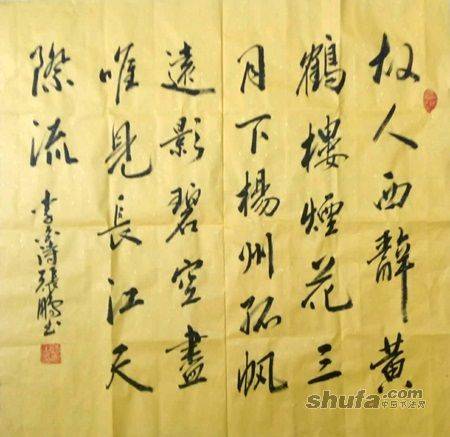 故人西辭黄
鶴樓煙花三
月下楊州孤帆
遠影碧空盡
唯見長江天
際流
李白詩張鵬书
shufa.com
中国书法网